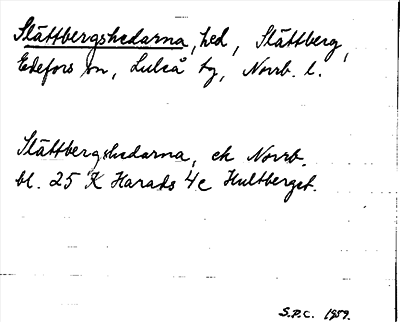 Slättbergshedarna, hed, Slättberg,
Edefors sn, Luleå tg, Norrb. l.
Slättbergshedarna, ek Norrb.
bl. 25 K Harads 4c Hultberget.
S.P.C. 1959.